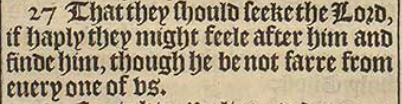 27 That they should seeke the Lord,
if haply they might feele after him and
finde him, though he be not farre from
euery one of vs.